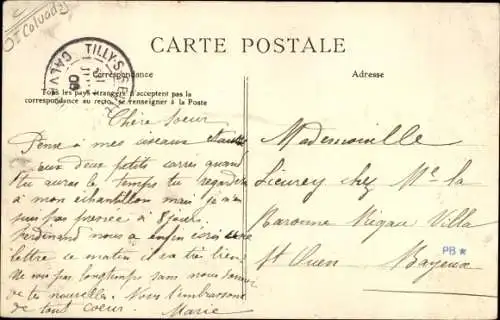 Dt Calvados
CARTE POSTALE
TILLY-S-SEULLES
CALV
Correspondance
Adresse
Tous les pays étrangers n'acceptent pas la
correspondance au recto, se renseigner à la Poste
Chère soeur
Pense à mes ciseaux
aux deux petits carrés quand
tu auras le temps tu regardera
à mon échantillon mais je n'en
suis pas pressée à 8 jours.
Ferdinand nous a enfin écris une
lettre ce matin il va très bien
Ne sois pas longtemps sans nous donner
de tes nouvelles. Nous t'embrassons
de tout coeur. Marie
Mademoiselle
Lieurey chez Me la
Baronne Rigau Villa
St Ouen Bayeux
PB *